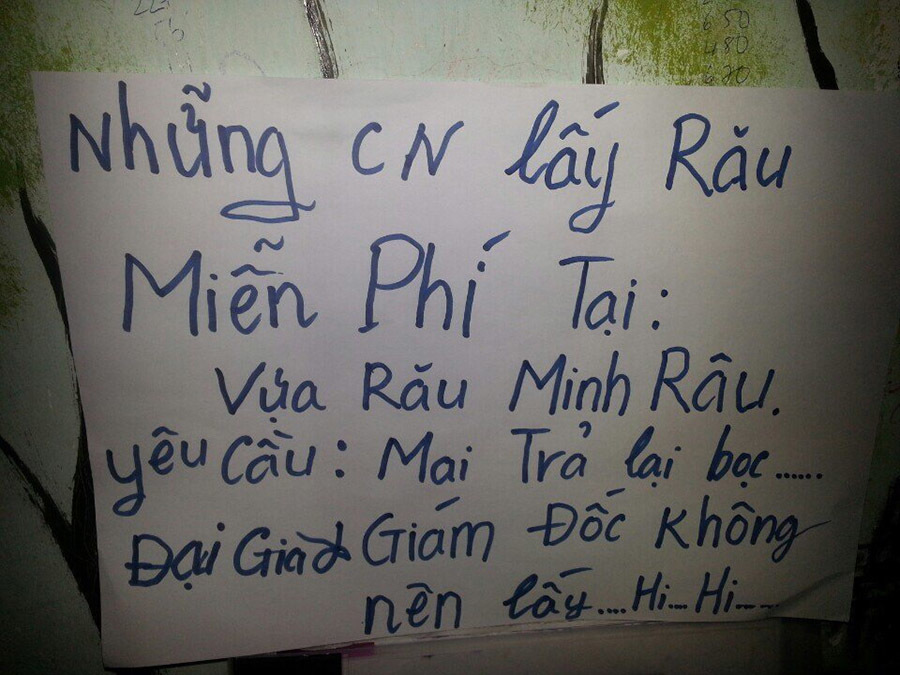 650
480
620
Những CN lấy Rău
Miễn Phí Tại:
Vựa Rău Minh Râu.
yêu Cầu: Mai Trả lại bọc......
Đại Giad Giám Đốc Không
nên lấy....Hi...Hi....